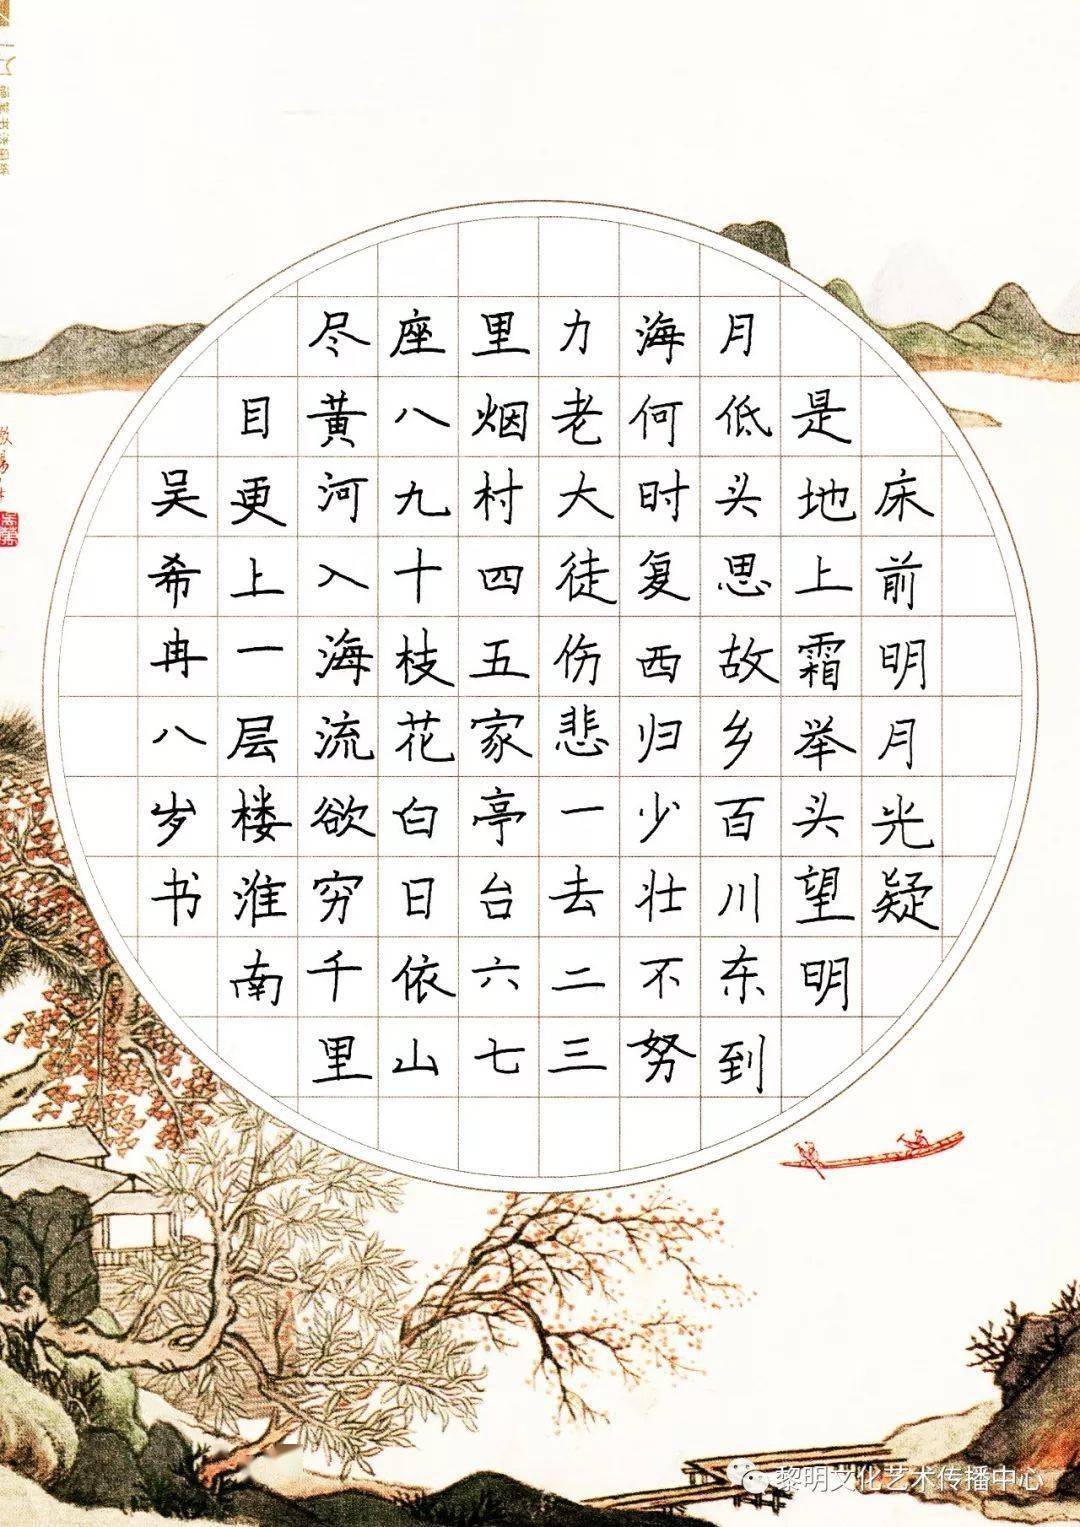 床前明月光疑
是地上霜举头望明
月低头思故乡百川东到
海何时复西归少壮不努
力老大徒伤悲一去二三
里烟村四五家亭台六七
座八九十枝花白日依山
尽黄河入海流欲穷千里
目更上一层楼淮南
吴希冉八岁书
黎明文化艺术传播中心